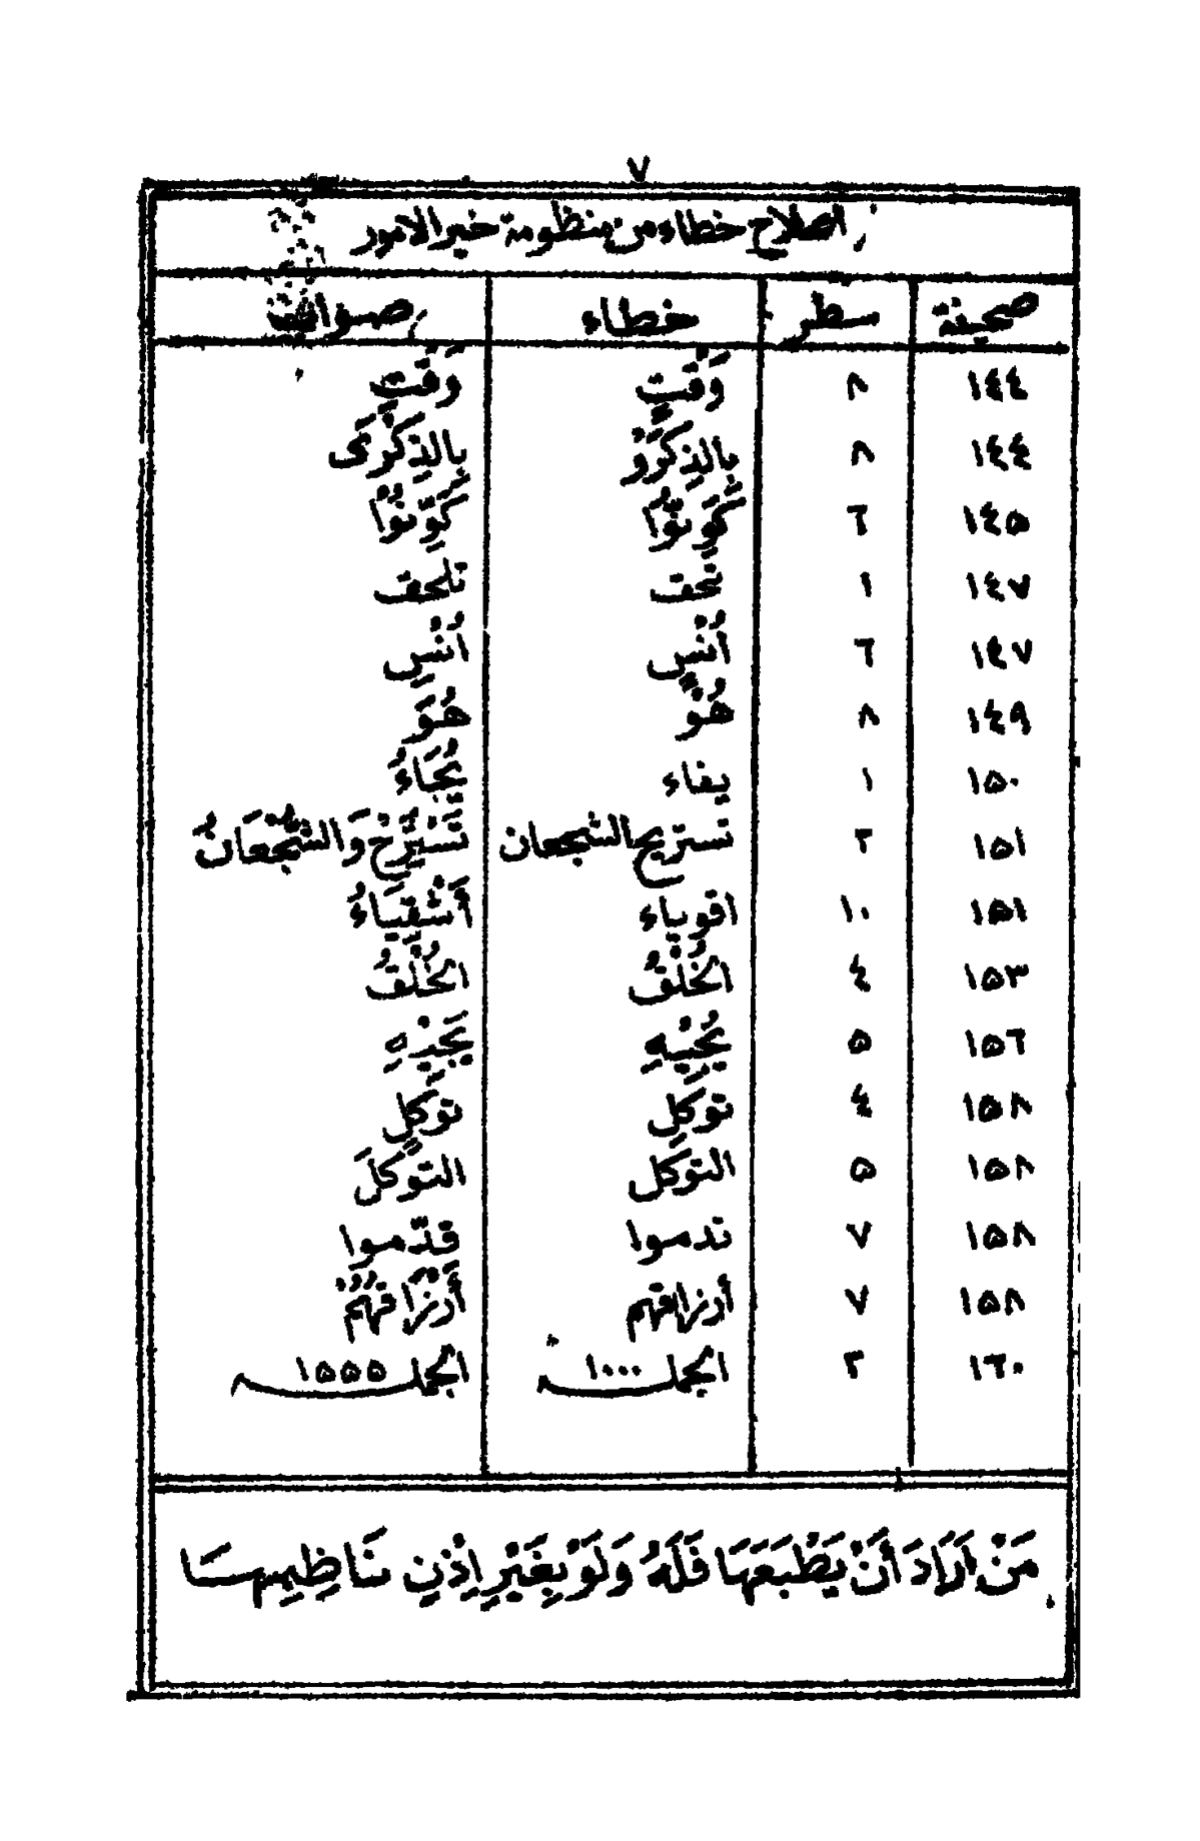 ٧
اصلاح خطاء من منظومة خير الامور
صحيفة سطر خطاء صواب
١٤٤ ٨ وَقْتٍ وَقْتِ
١٤٤ ٨ بِالذِكْرَوْ بِالذِكْرَى
١٤٥ ٦
١٤٧ ١ تلحف
١٤٧ ٦ أُنْسٍ أُنْسِ
١٤٩ ٨ هُوَ
١٥٠ ١ يفاء
١٥١ ٢ تستريح الشجعان تَسْتَرِحْ وَالشُّجْعَانُ
١٥١ ١٠ اقوياء أَشْقِيَاءُ
١٥٣ ٤ الخُلْفُ الخُلْفُ
١٥٦ ٥
١٥٨ ٤ توكل توكَّلِ
١٥٨ ٥ التوكل التوكلَ
١٥٨ ٧ ندموا قدّموا
١٥٨ ٧ أرزاقهم أَرْزَاقَهُمْ
١٦٠ ٣ الجملة ١٠٠٠ الجملة ١٥٥٥
مَنْ اَرَادَ أَنْ يَطْبَعَهَا فَلَهُ وَلَوْ بِغَيْرِ اِذْنِ نَاظِمِهَا